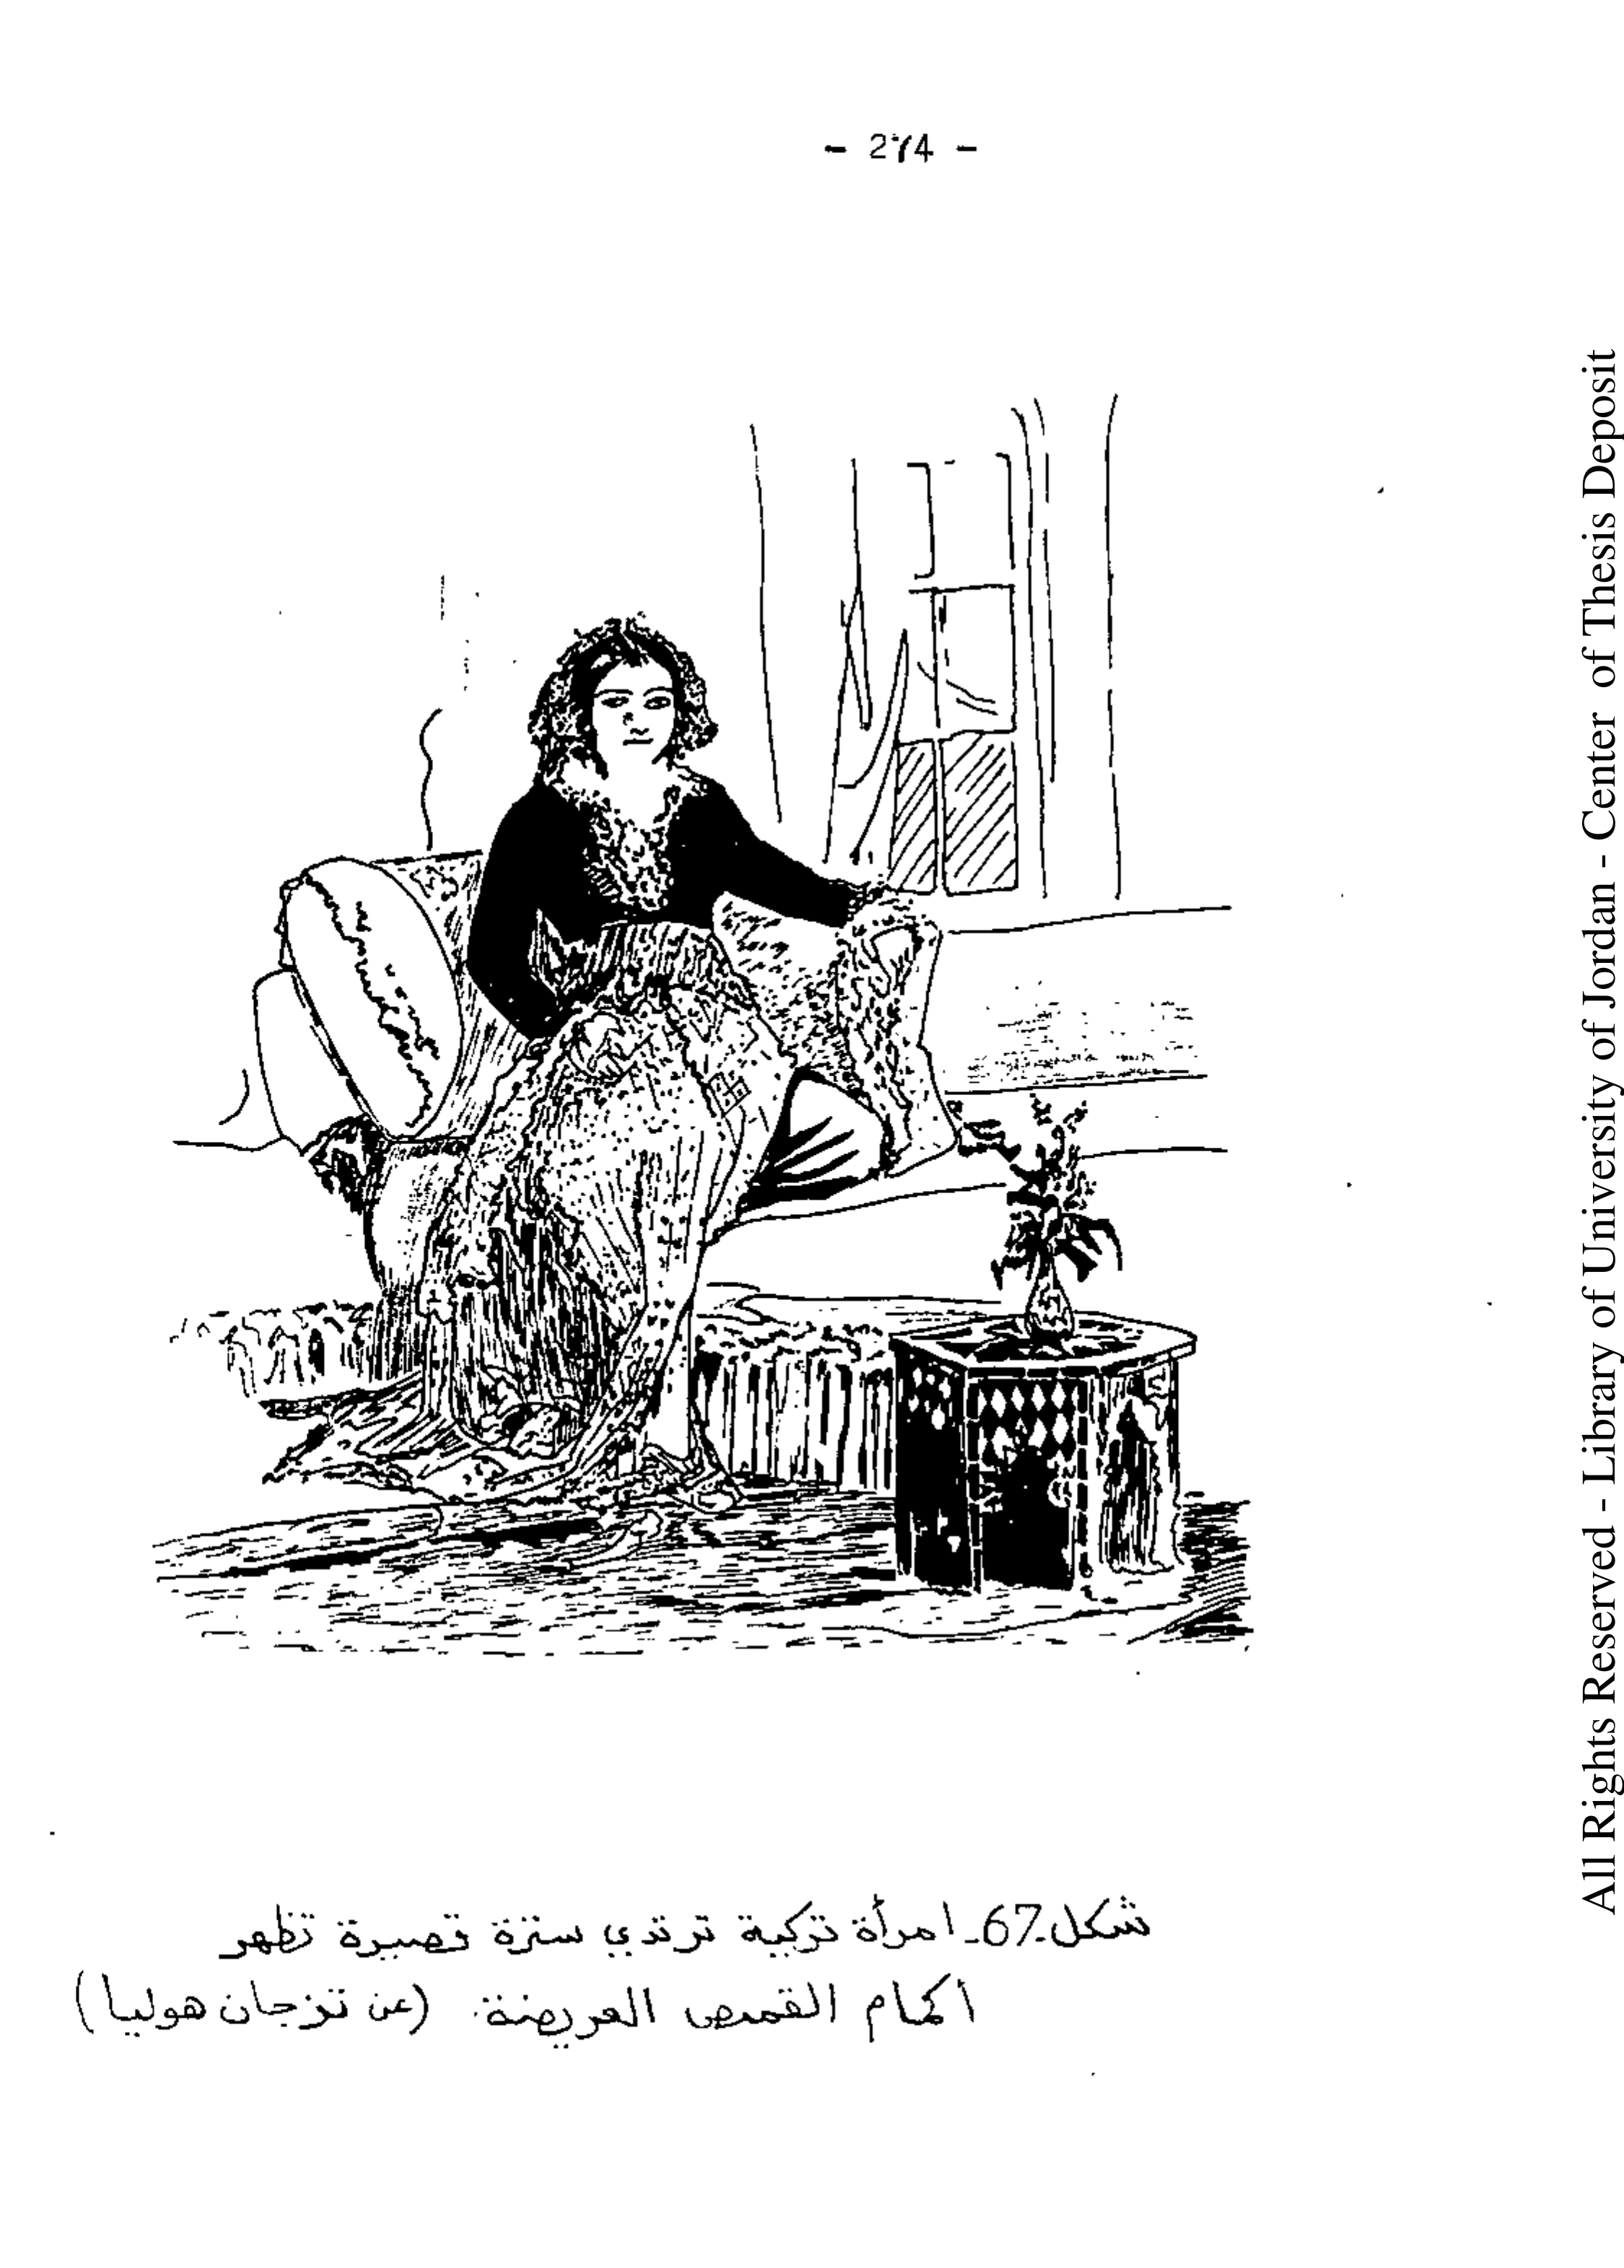 - 274 -
شكل 67- امرأة تركية ترتدي سترة قصيرة تظهر
اكمام القميص العريضة. (عن تزجان هوليا)
All Rights Reserved - Library of University of Jordan - Center of Thesis Deposit